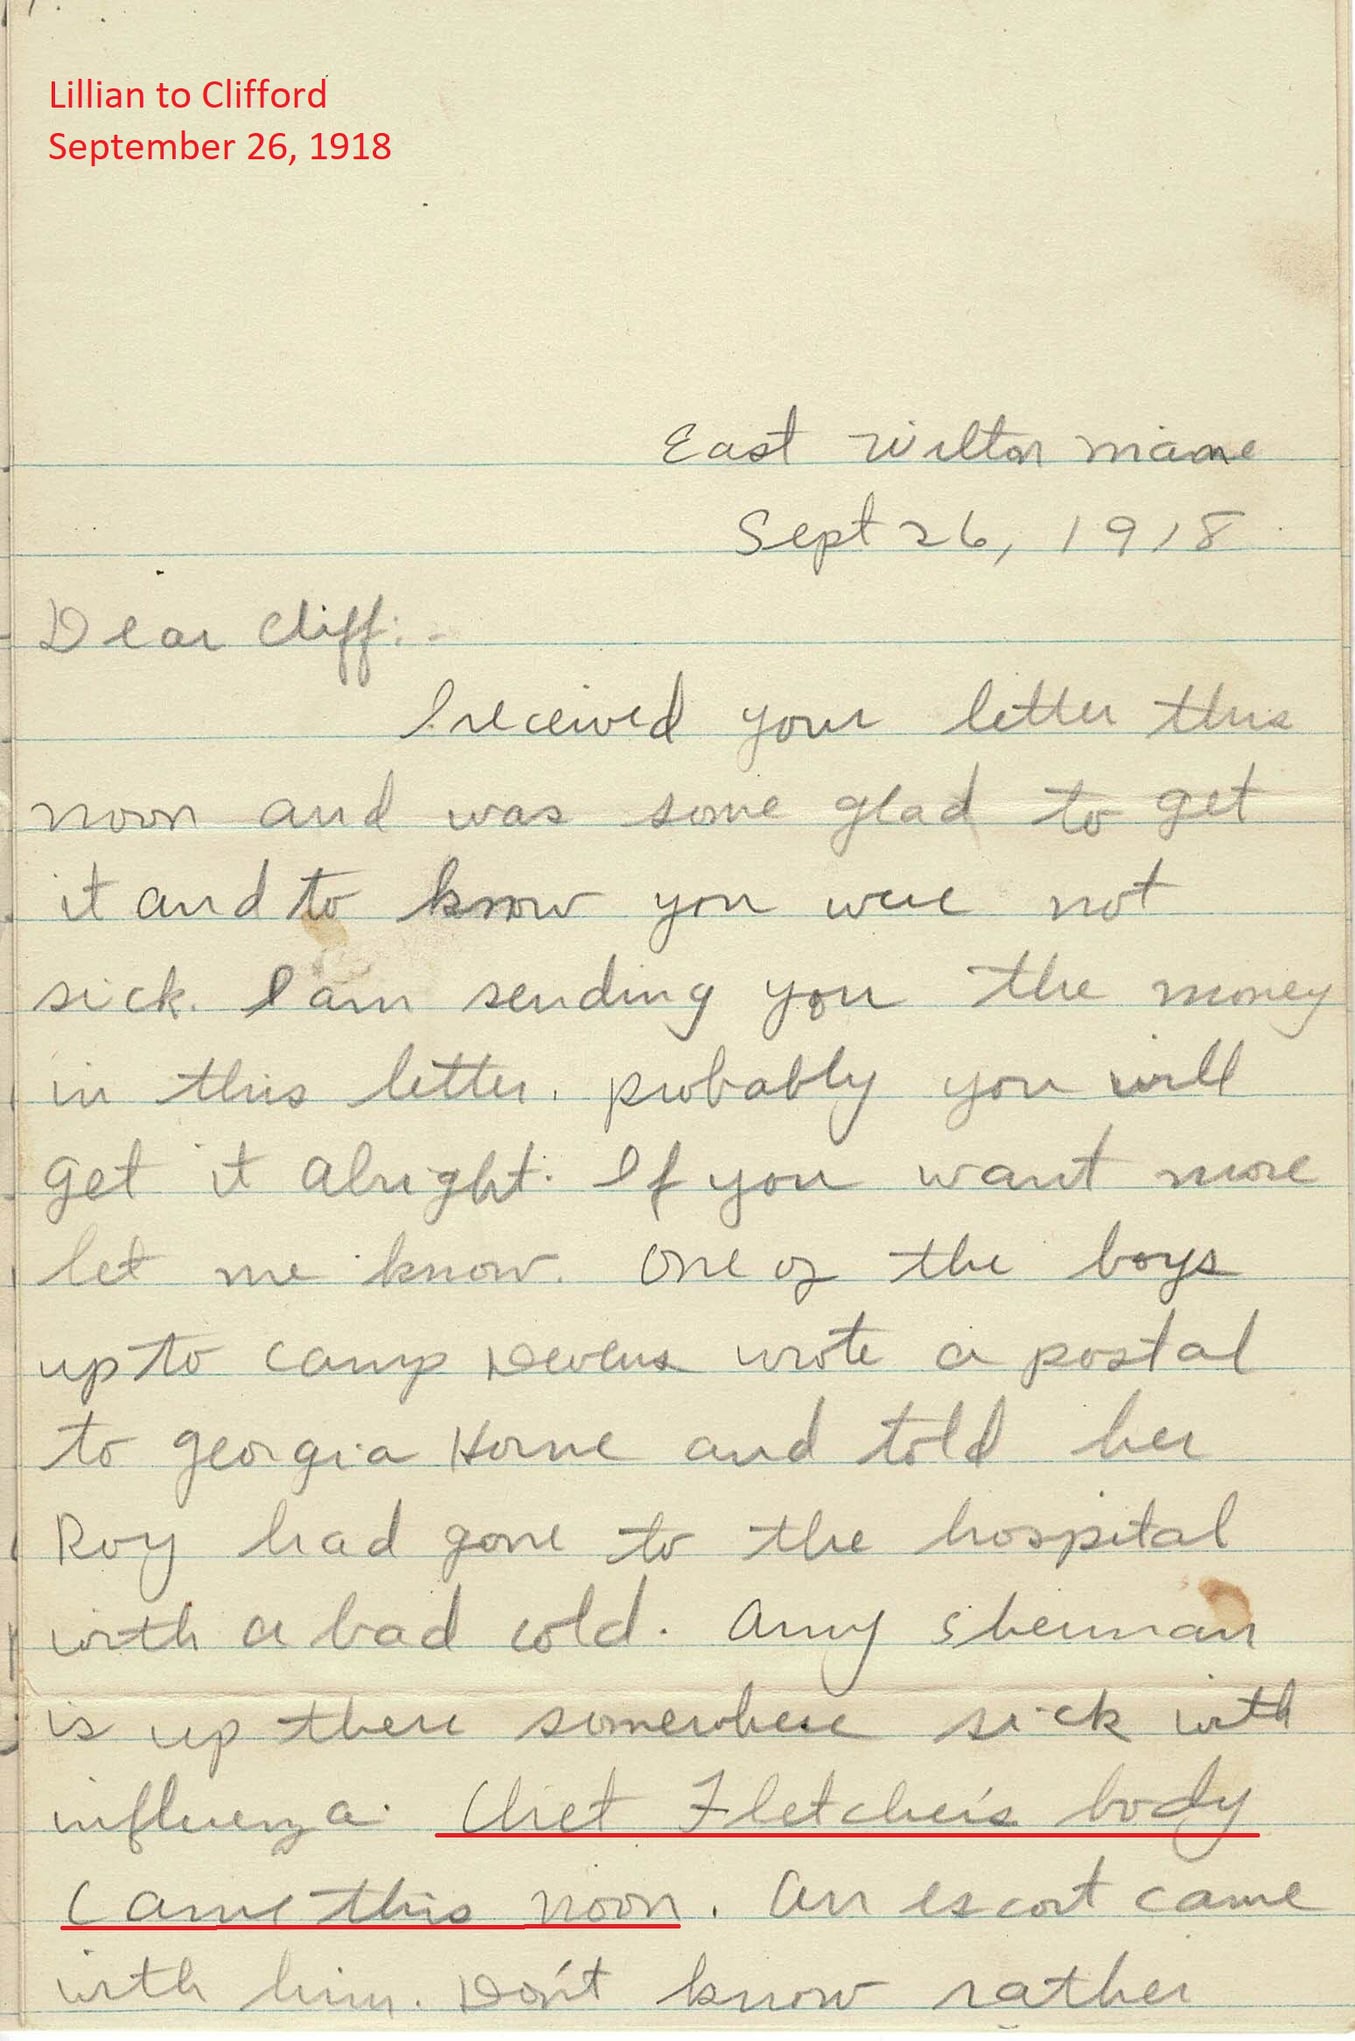 Lillian to Clifford
September 26, 1918
East Wilton Maine
Sept 26, 1918
Dear Cliff:-
I received your letter this
noon and was some glad to get
it and to know you were not
sick. I am sending you the money
in this letter. probably you will
get it alright. If you want more
let me know. One of the boys
up to Camp Devens wrote a postal
to Georgia Horne and told her
Roy had gone to the hospital
with a bad cold. Amy Sherman
is up there somewhere sick with
influenza. Chet Fletcher's body
Came this noon. An escort came
with him. Don't know rather